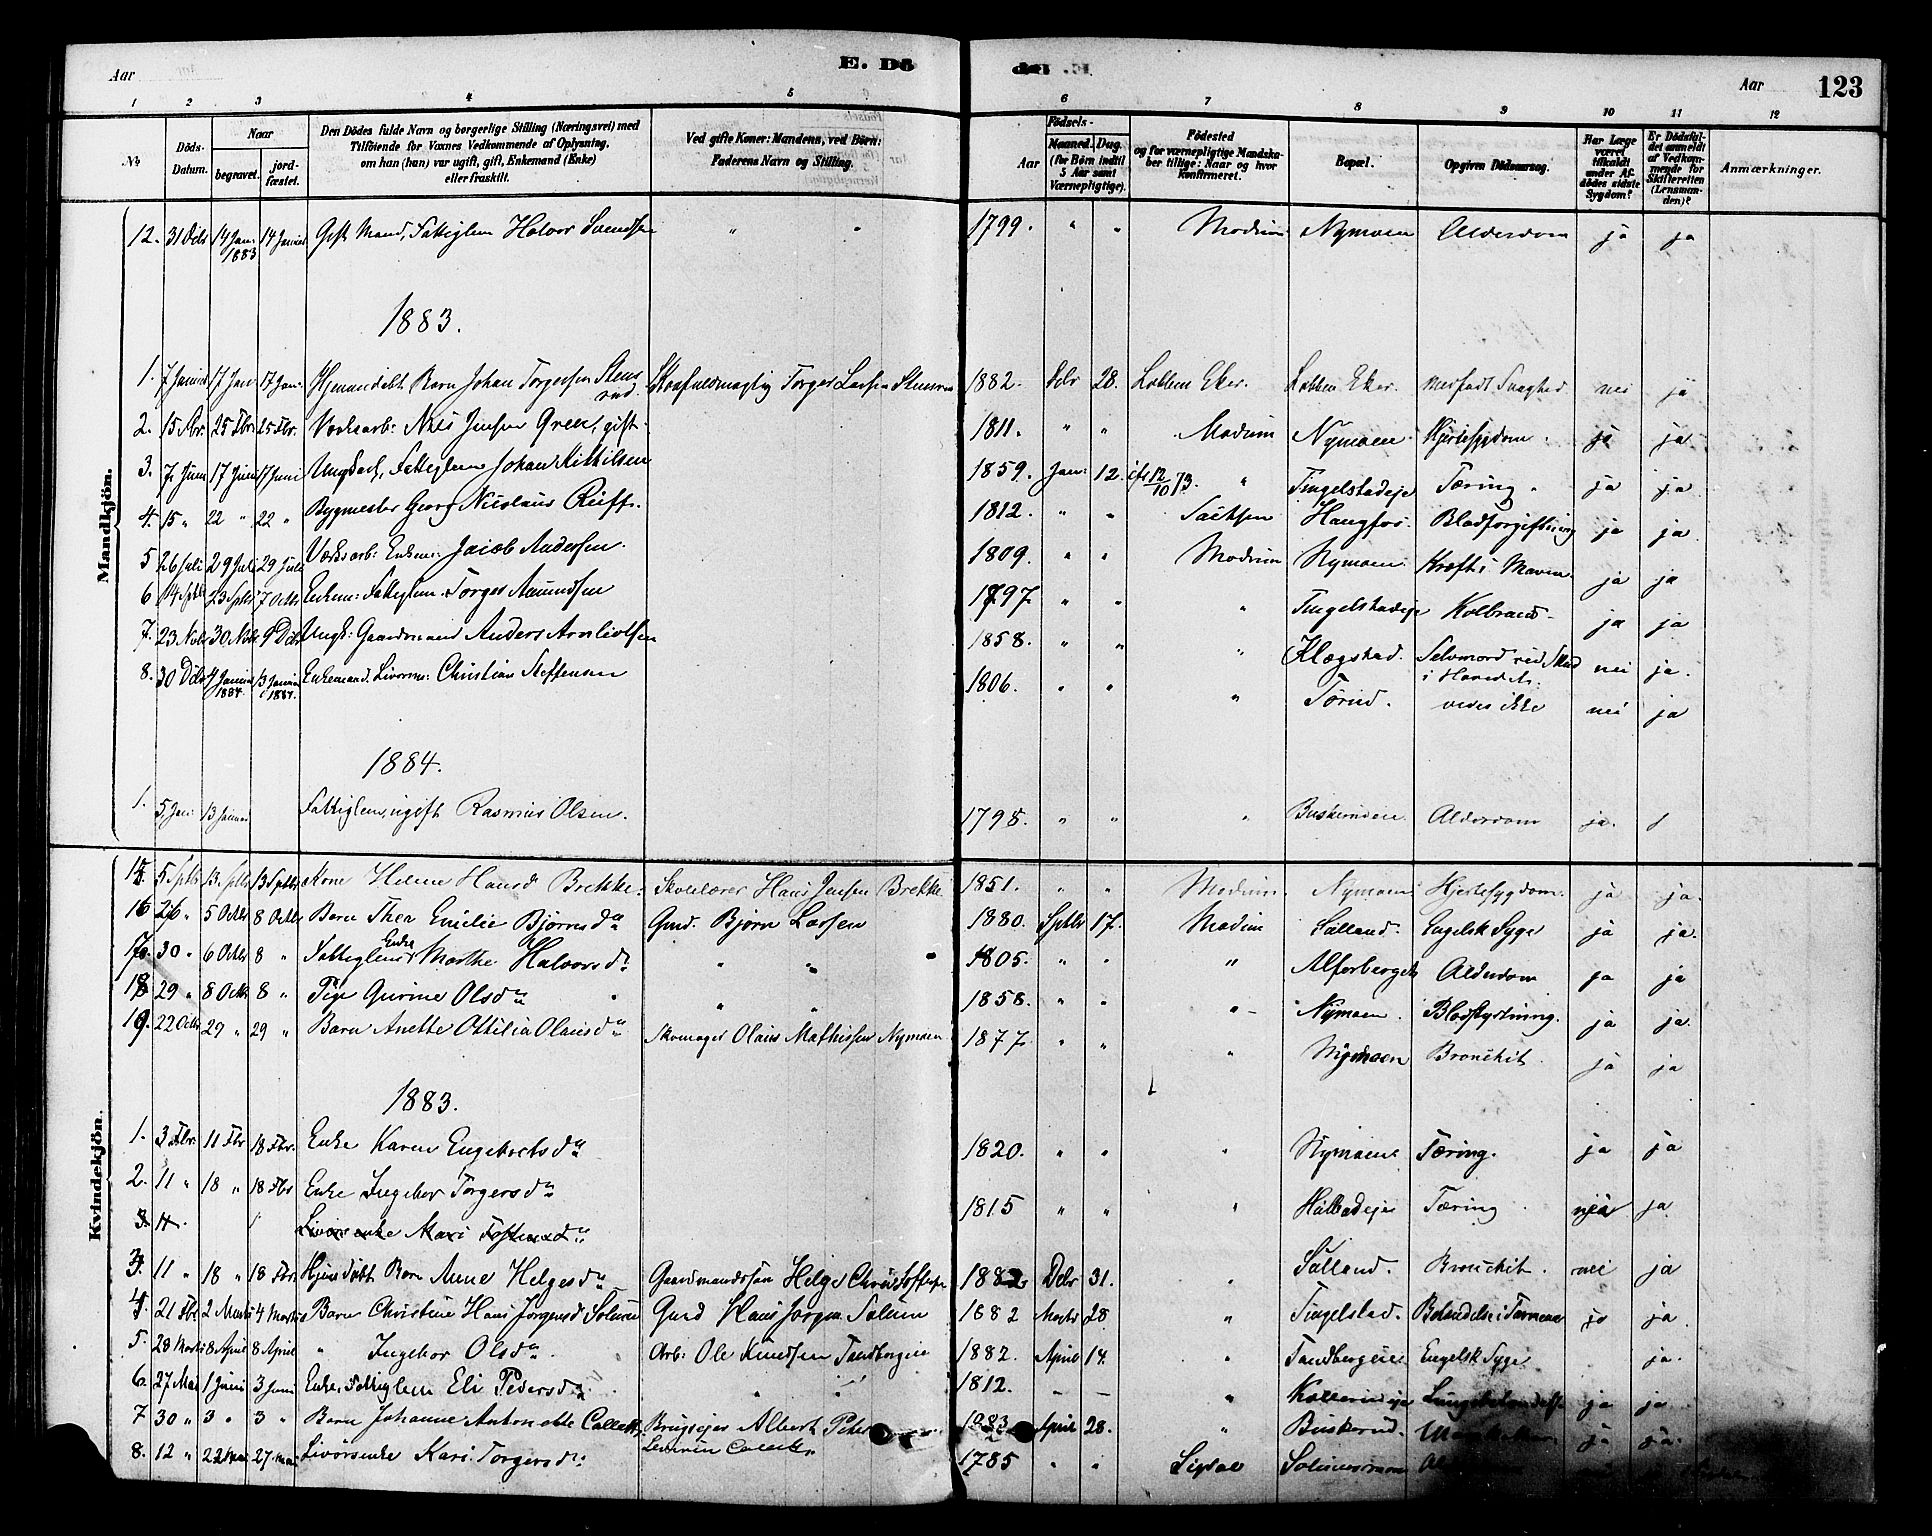 Aar
E. Dö
Aar
123
1 2 3 4 5 6 7 8 9 10 11 12
No
Döds-Datum.
Naar
begravet.
jord-fæstet.
Den Dödes fulde Navn og borgerlige Stilling (Næringsvei) med
Tilföiende for Voxnes Vedkommende af Oplysning,
om han (hun) var ugift, gift, Enkemand (Enke)
eller fraskilt.
Ved gifte Koner: Mandens, ved Börn:
Faderens Navn og Stilling.
Födsels-
Aar
Maaned. Dag.
(for Börn indtil
5 Aar samt
Værnepligtige).
Födested
og for værnepligtige Mandska-
ber tillige: Naar og hvor
Konfirmeret.
Bopæl.
Opgiven Dödsaarsag.
Har Læge
været
tilkaldt
under Af-
dödes sidste
Sygdom?
Er Dödsfal-
det anmeldt
af Vedkom-
mende for
Skifteretten
(Lensman-
den)?
Anmærkninger.
Mandkjön.
12. 31 Dcbr 14 Jan. 1883 14 Januar Gift Mand, Fattiglem Halvor Svendsen " " 1799. " " Modum Nymoen Alderdom ja ja
1883.
1. 7 Januar 17 Jan 17 Jan. Hjemmedøbt Barn Johan Torgersen Stensrud. Torger Larsen 1882. Dcbr 28. Eker. Eker. medfødt Svaghed nei ja
2. 15 Fbr. 25 Fbr. 25 Fbr. Nils Jensen Green, gift. 1811. " " Modum Nymoen. Hjertesygdom. ja ja
3. 7 Juni 17 Juni 17 Juni Ungkarl, Fattiglem Johan Kittilsen 1859. Jan: 12. 12/10 73. " Tingelstadeje Tæring. ja ja
4. 15 " 22 " 22 " Bygmester Georg Nicolaus Reiff. 1812. " " Sachsen Haugfos. Blodforgiftning ja ja
5 26 Juli 29 Juli 29 Juli Værksarb: Enkem: Jacob Andersen. 1809. " " Modum Nymoen. Kræft i Maven. ja ja
6 14 Sptbr 23 Sptbr 7 Octbr Enkem: Fattiglem. Torger Aamundsen 1797 " " " Tingelstadeje Kolbrand. ja ja
7. 23 Nvbr 30 Nvbr 9 Dcbr Ungk: Gaardmand Anders Arnliotsen 1858. " " " Klægstad. Selvmord ved Skud i Hovedet. nei ja.
8. 30 Dcbr 4 Januar 1884. 13 Januar 1884. Enkemand. Christian Steffensen 1806. " " " Tørud. vides ikke nei ja
1884.
1. 5 Jan: 13 Januar Fattiglem, ugift Rasmus Olsen. 1798. " " " Alderdom ja.
Kvindekjön.
15. 5 Sptbr 13. Sptbr 13 Sptbr Kone Helene Hansd Brekke. Skolelærer Hans Jensen Brekke 1851. " " Modum. Nymoen Hjertesygdom. ja ja.
16 26 " 5 Octbr 8 Octbr Barn Thea Emilie Bjørnsdr Gmd. Bjørn Larsen 1880. Sptbr 17. Modum Sælland. Engelsk Syge ja ja.
17. 30 " 6 Octbr 8 " Fattiglem Enke Marthe Halvorsdr. " " 1805. " " " Alderdom ja ja
18 29 " 8 Octbr 8 " Pige Gurine Olsdr " " 1858. " " " Nymoen. Blodstyrtning. ja ja.
19. 22 Octbr 29 " 29 " Barn Anette Ottilia Olausdr Skomager Olaus Mathissen Nymoen 1877. " " " Nymoen Bronchit. ja ja
1883.
1. 3 Fbr. 11 Fbr 18 Fbr. Enke Karen Engebretsdr 1820. " " " Nymoen Tæring. ja ja
2. 11 " 18 " 18 Fbr Enke Ingebor Torgersdr 1815 " " " Tæring. ja
3. 11. Mari
3. 11 " 18 " 18 Fbr. Hjemdøbt Barn Anne Helgesdr Gaardmandssøn Helge Christoffersen 1882 Dcbr 31. " Sælland. Bronchit. nei ja
4. 21 Fbr. 2 Marts 4 Marts Barn Christine Hans Jørgensd Solum Gmd Hans Jørgen Solum 1882 Marts 28 " Tingelstad. Betændelse i Tarmene ja ja.
5. 28 Marts 8 April 8 April " Ingebor Olsdr. Arb: Ole Knudsen Tandbergeie 1882. April 14. " Tandbergeie. Engelsk Syge ja.
6. 27 Mai 1 Juni 3 Juni Enke, Fattiglem Eli Pedersdr. " " 1812. " Lungebetændelse ja ja
7 30 " 3 " 3 " Barn Johanne Antonette Collett, Brugseier Albert Peter Collett 1883 April 28. " Buskerud. ja ja.
8. 12 " 22 Mai 27. Mai Kari Torgersdr. 1785 " " Sigdal